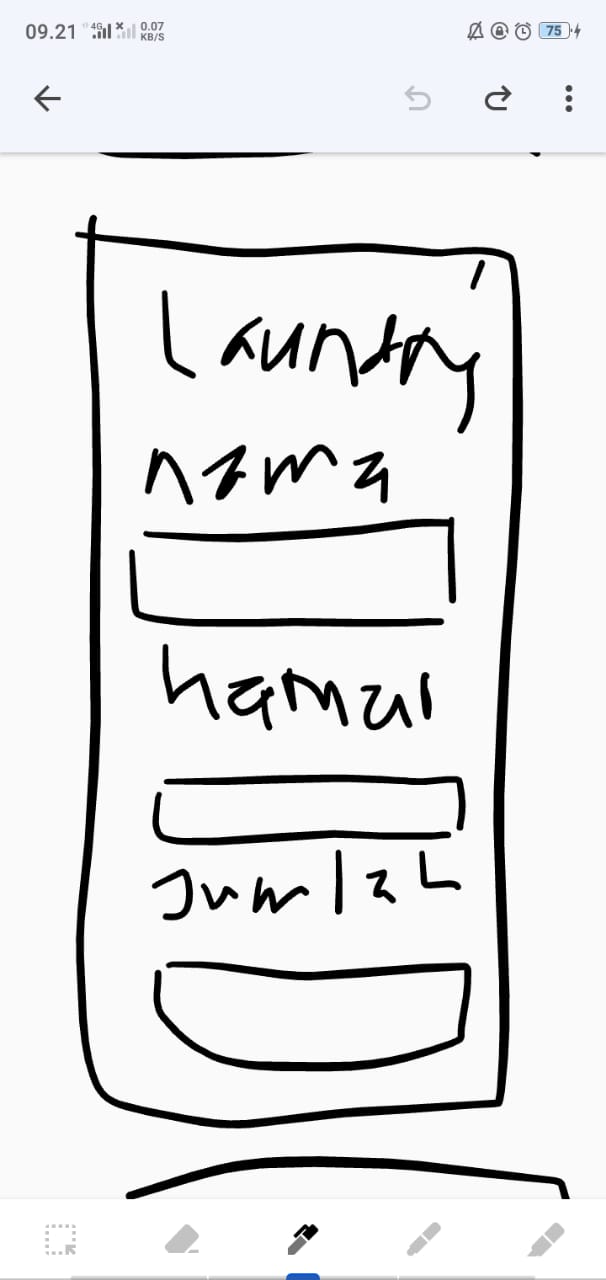 09.21 4G 0.07 KB/S 75
Laundry
nama
kamar
Jumlah